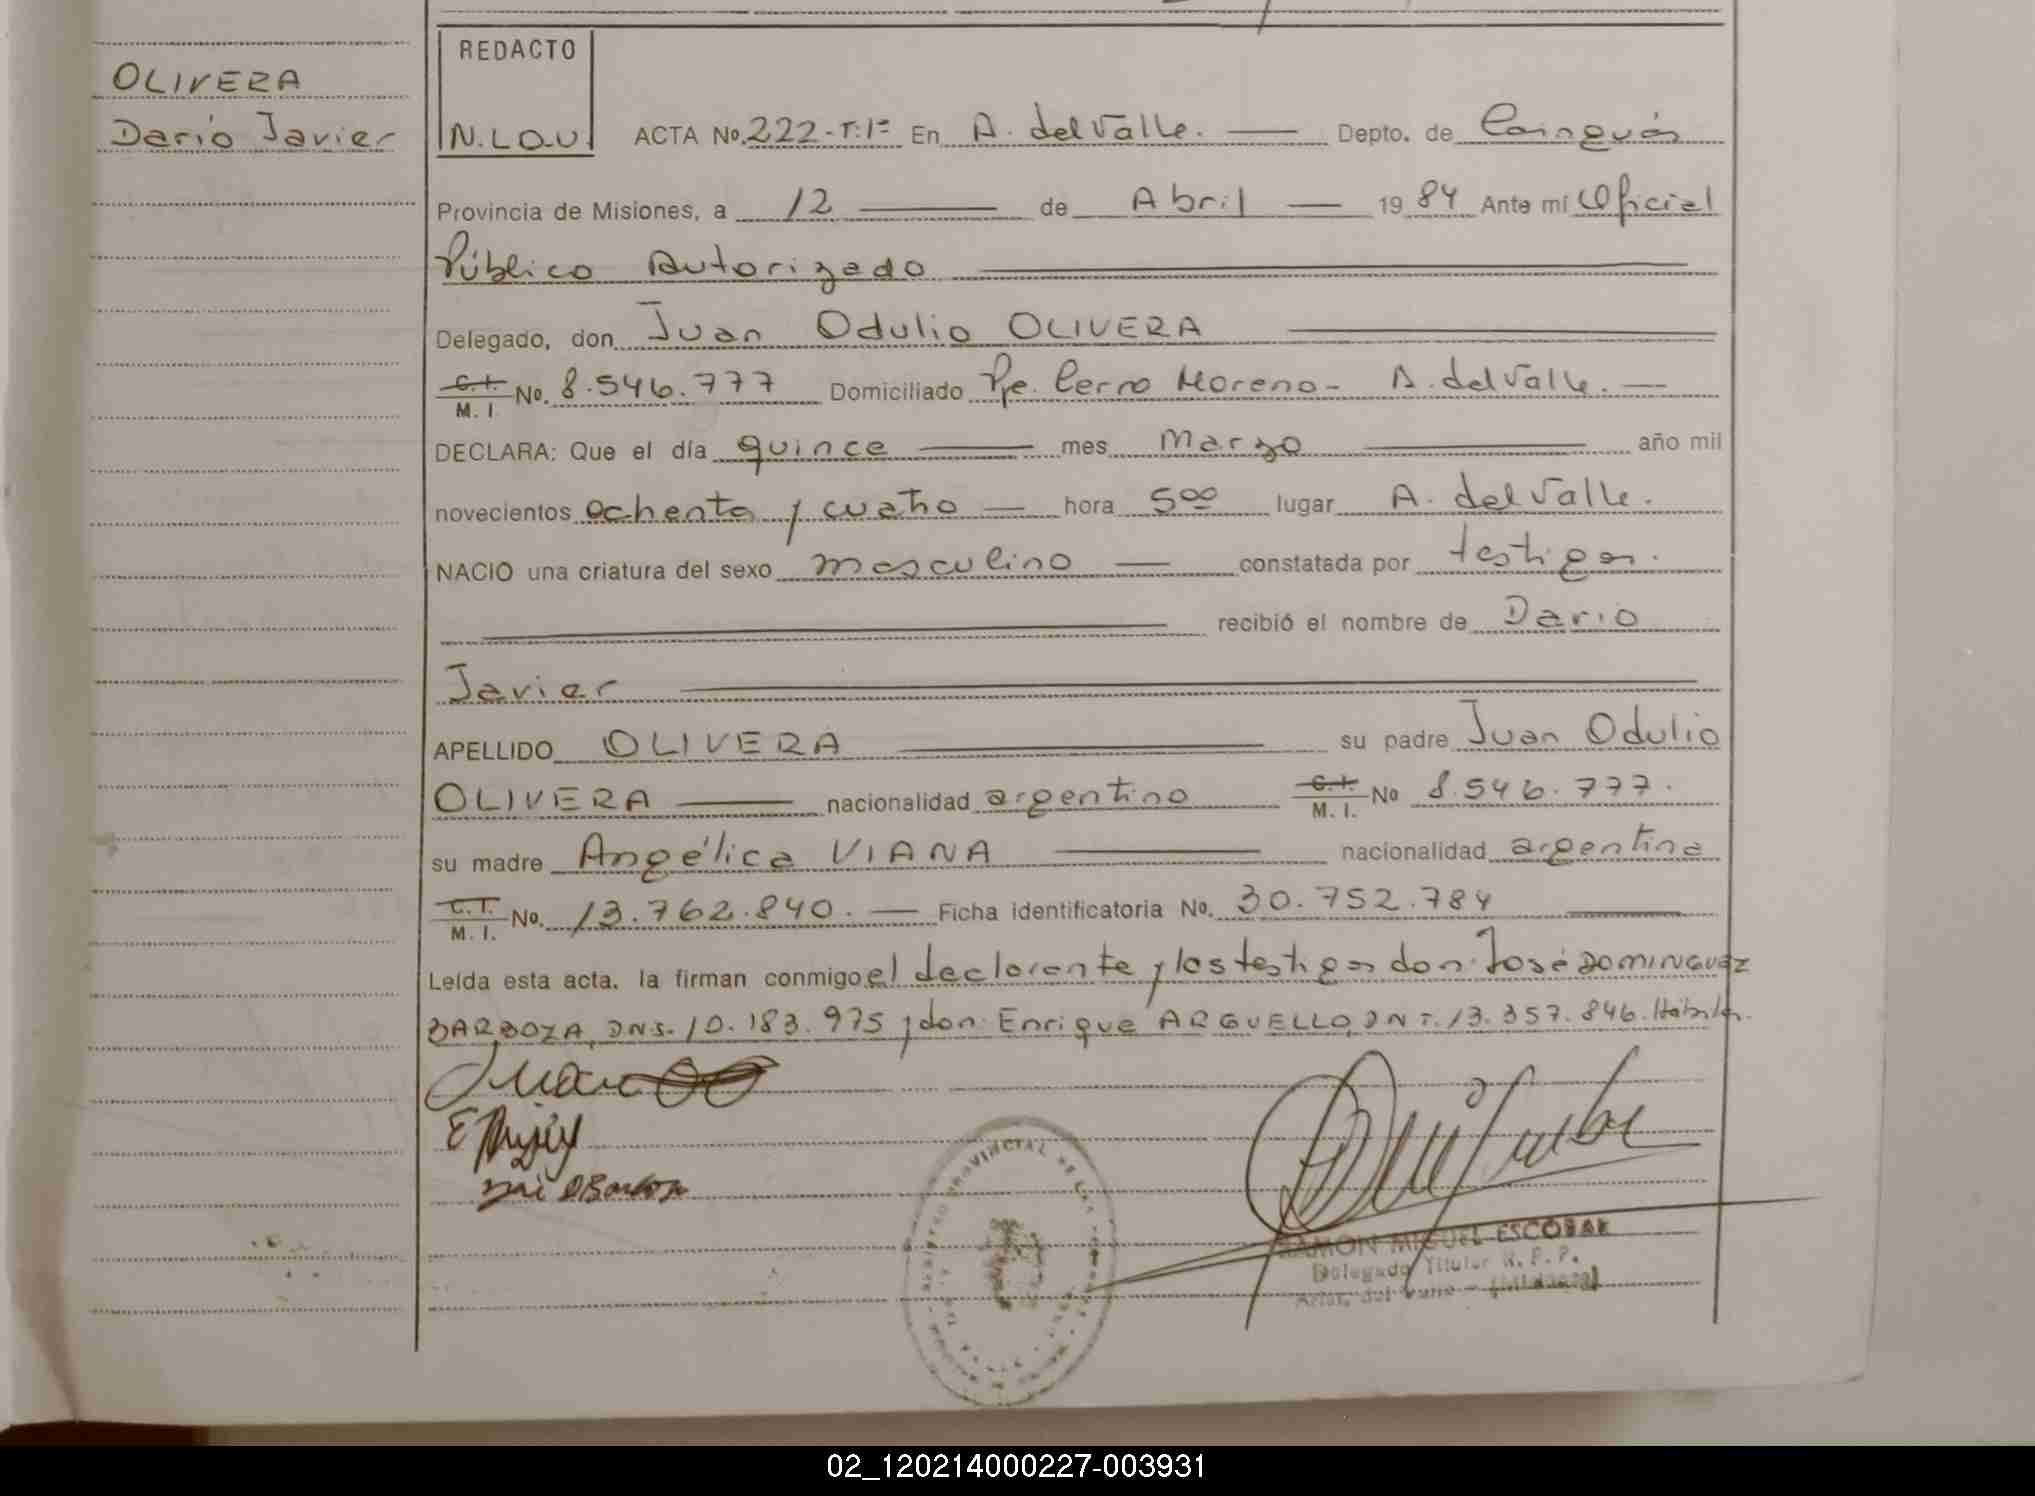 OLIVERA
Darío Javier
REDACTO
N.LO.U.
ACTA No. 222-T:1º En A. del Valle. — Depto. de Cainguás
Provincia de Misiones, a 12 — de Abril — 19 84 Ante mi Oficial
Público Autorizado
Delegado, don Juan Odulio OLIVERA
C.I. M. I. No. 8.546.777 Domiciliado Pje. Cerro Moreno - A. del Valle. —
DECLARA: Que el día quince — mes Marzo — año mil
novecientos ochenta y cuatro — hora 5 00 lugar A. del Valle.
NACIO una criatura del sexo masculino — constatada por testigos.
recibió el nombre de Darío
Javier
APELLIDO OLIVERA — su padre Juan Odulio
OLIVERA — nacionalidad argentino C.I. M. I. No 8.546.777.
su madre Angélica VIANA — nacionalidad argentina
C.I. M. I. No. 13.762.840. — Ficha identificatoria No. 30.752.784
Leída esta acta, la firman conmigo el declarante y los testigos don José DOMINGUEZ
BARBOZA, DNI. 10.183.975 y don Enrique ARGUELLO, DNI. 13.357.846. Hábiles.
Juan
RAMON MIGUEL ESCOBAR
Delegado Titular R. P. P.
Aris. del Valle - (Misiones)
02_120214000227-003931